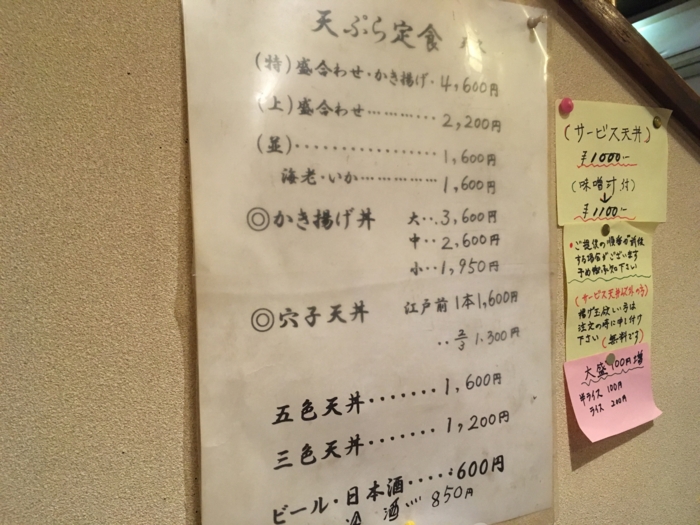 天ぷら定食
(特)盛合わせ・かき揚げ・4,600円
(上)盛合わせ…………2,200円
(並)………………1,600円
海老・いか…………1,600円
◎かき揚げ丼 大‥3,600円
中‥2,600円
小‥1,950円
◎穴子天丼 江戸前1本1,600円
‥2/3 1,300円
五色天丼・・・・・・・1,600円
三色天丼・・・・・・・1,200円
ビール・日本酒・・・・:600円
酒… 850円
(サービス天丼)
¥1000-
(味噌汁付)
↓
¥1100-
・ご提供の順番が前後
する場合がございます
予め御承知下さい
(サービス天丼以外の方)
揚げ玉欲しい方は
注文の時に申し付け
下さい (無料です)
大盛 100円増
半ライス 100円
ライス 200円